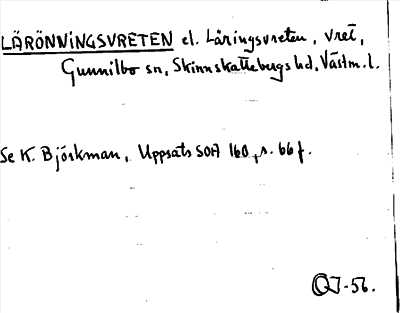 LÄRÖNNINGSVRETEN el. Låringsvreten, vret,
Gunnilbo sn, Skinnskattebergs hd, Västm. l.
Se K. Björkman, Uppsats SOA 160, s. 66 f.
OJ-56.